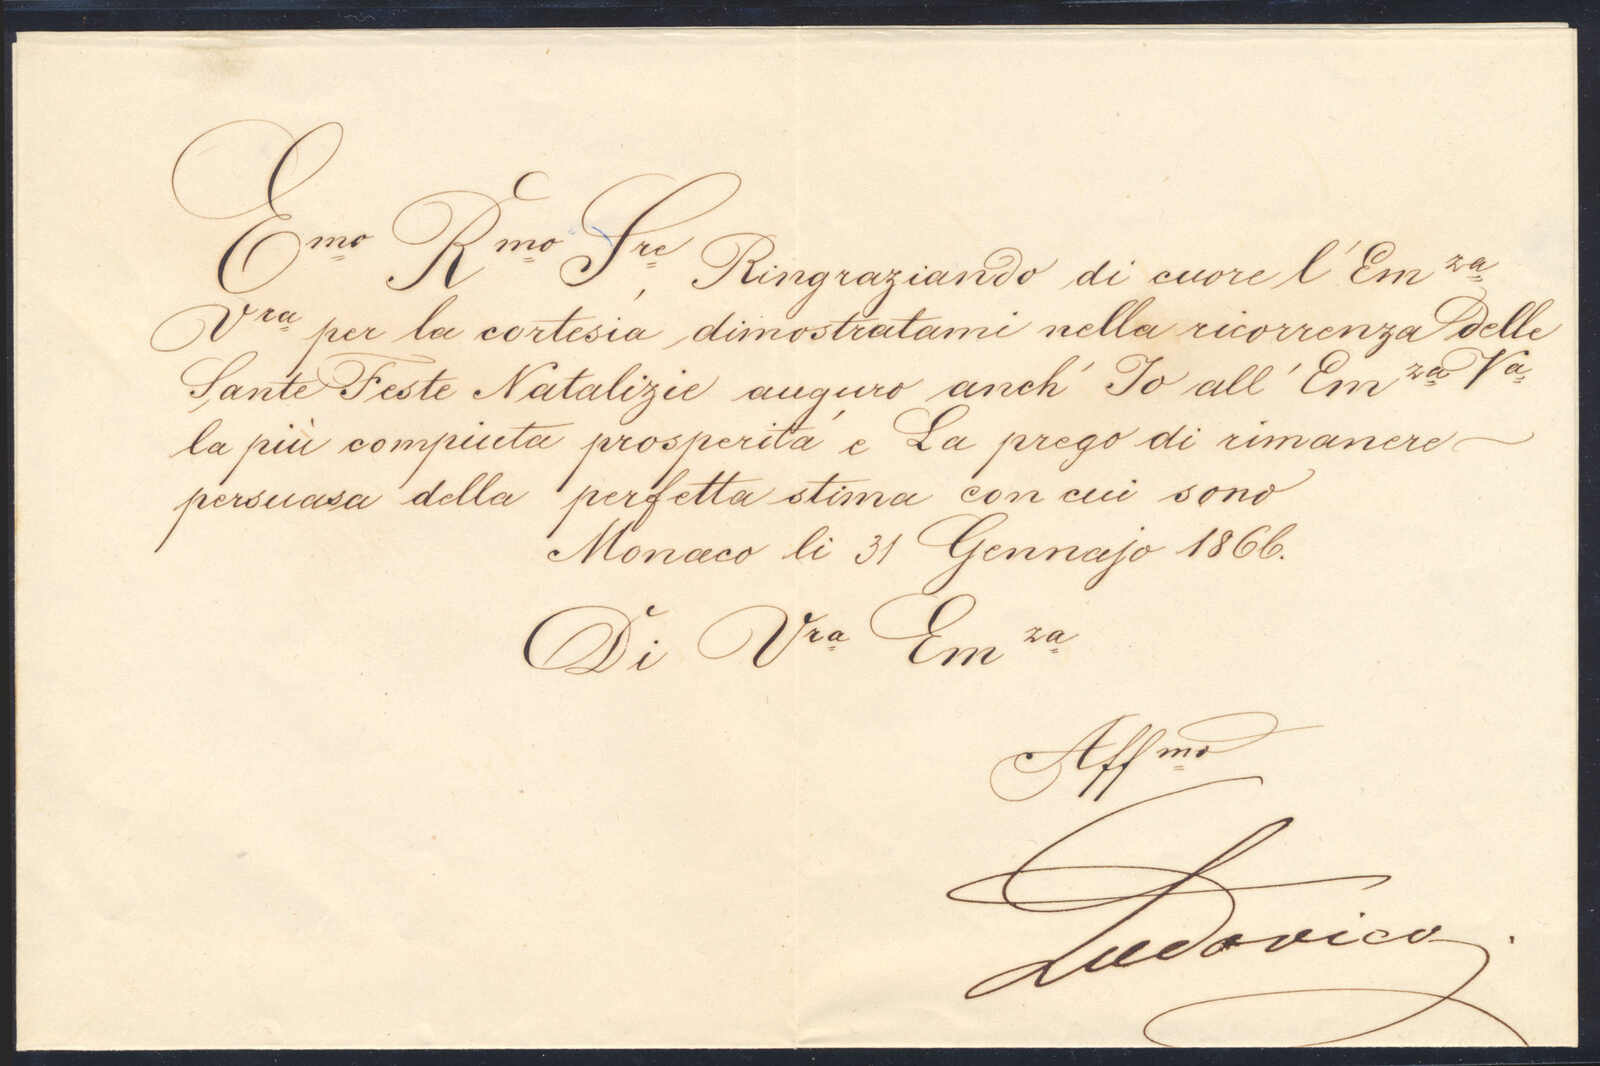 Emo Rmo Sre, Ringraziando di cuore l'Emza
Vra per la cortesia dimostratami nella ricorrenza delle
Sante Feste Natalizie auguro anch'Io all'Emza Va
la più compiuta prosperità e La prego di rimanere
persuasa della perfetta stima con cui sono
Monaco li 31 Gennajo 1866.
Di Vra Emza
Affmo
Ludovico.